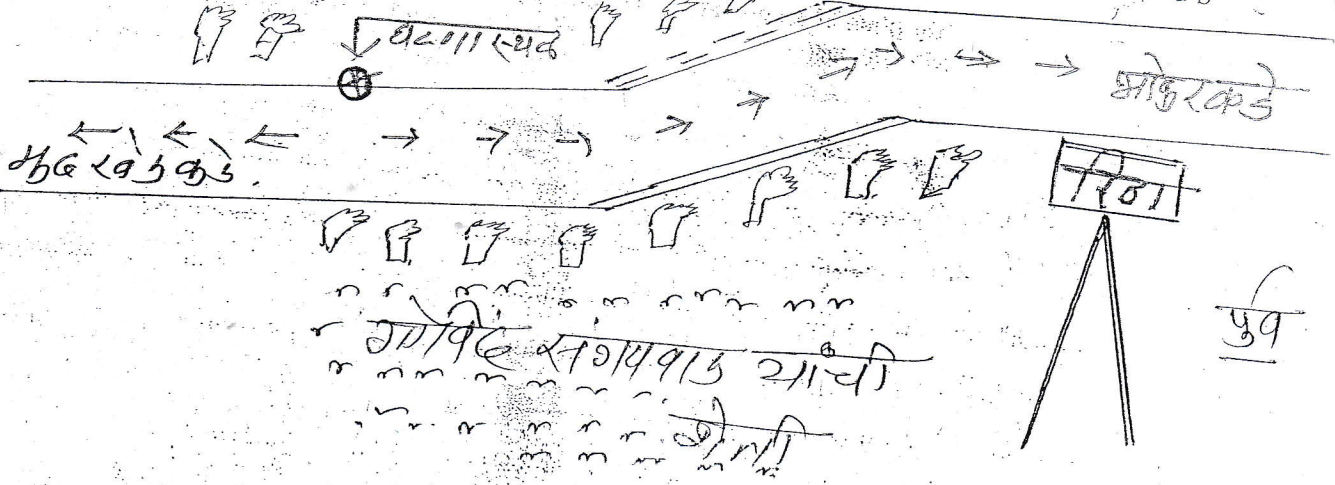 घटनास्थळ
भोकरकडे
मुदखेडकडे.
रिठा
पुर्व
गोविंद संगपवाड यांची
शेती